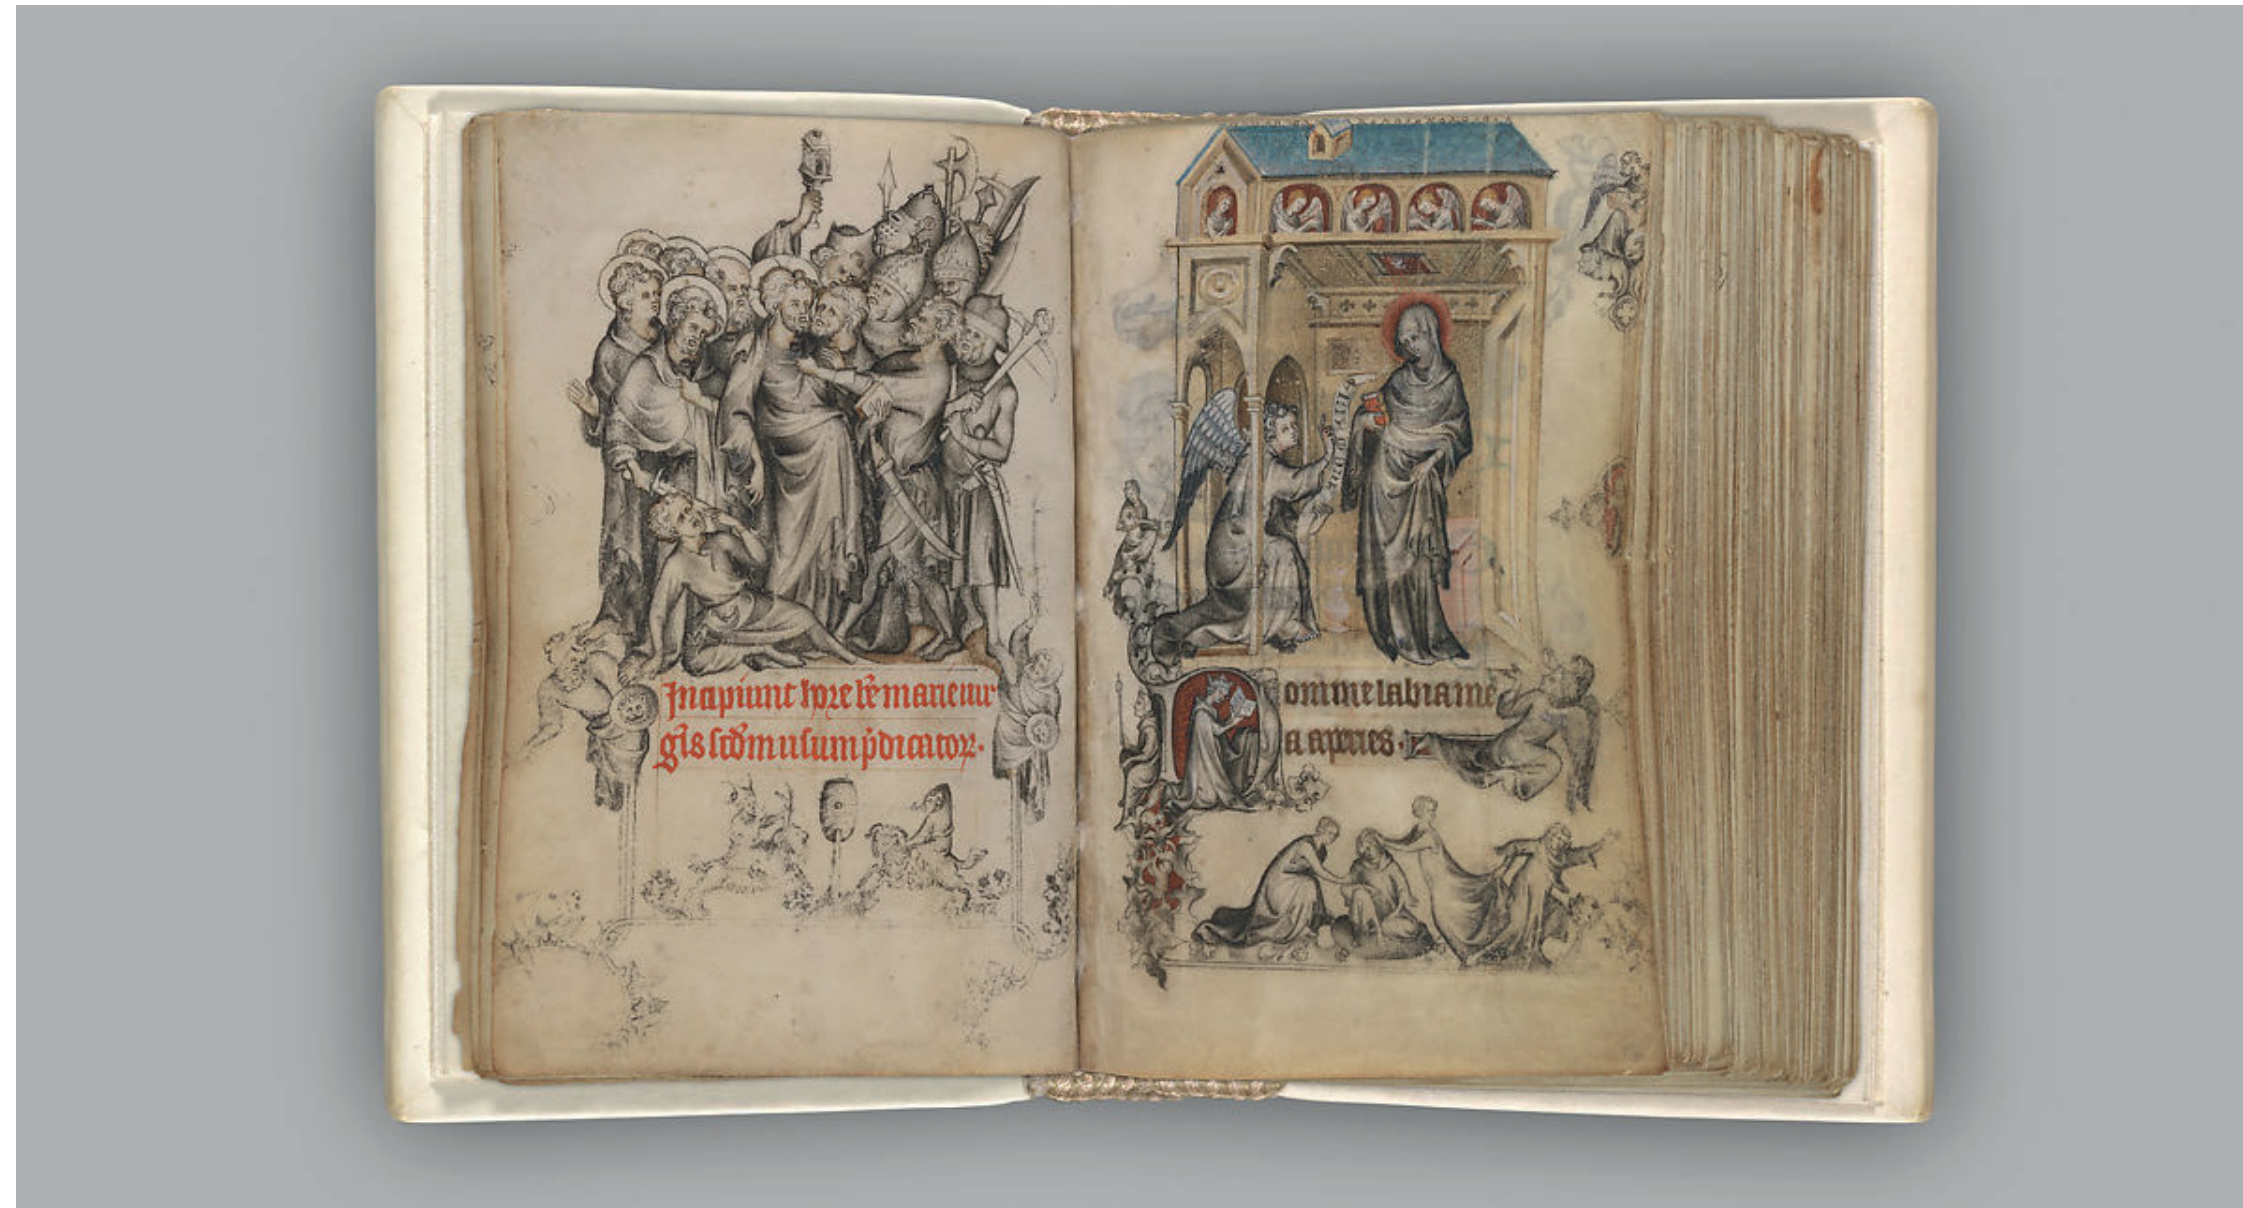 Incipiunt hore b̄e marie uir
gīs scd̄m usum p̄dicatoꝝ.
Domine labia me
a aperies.